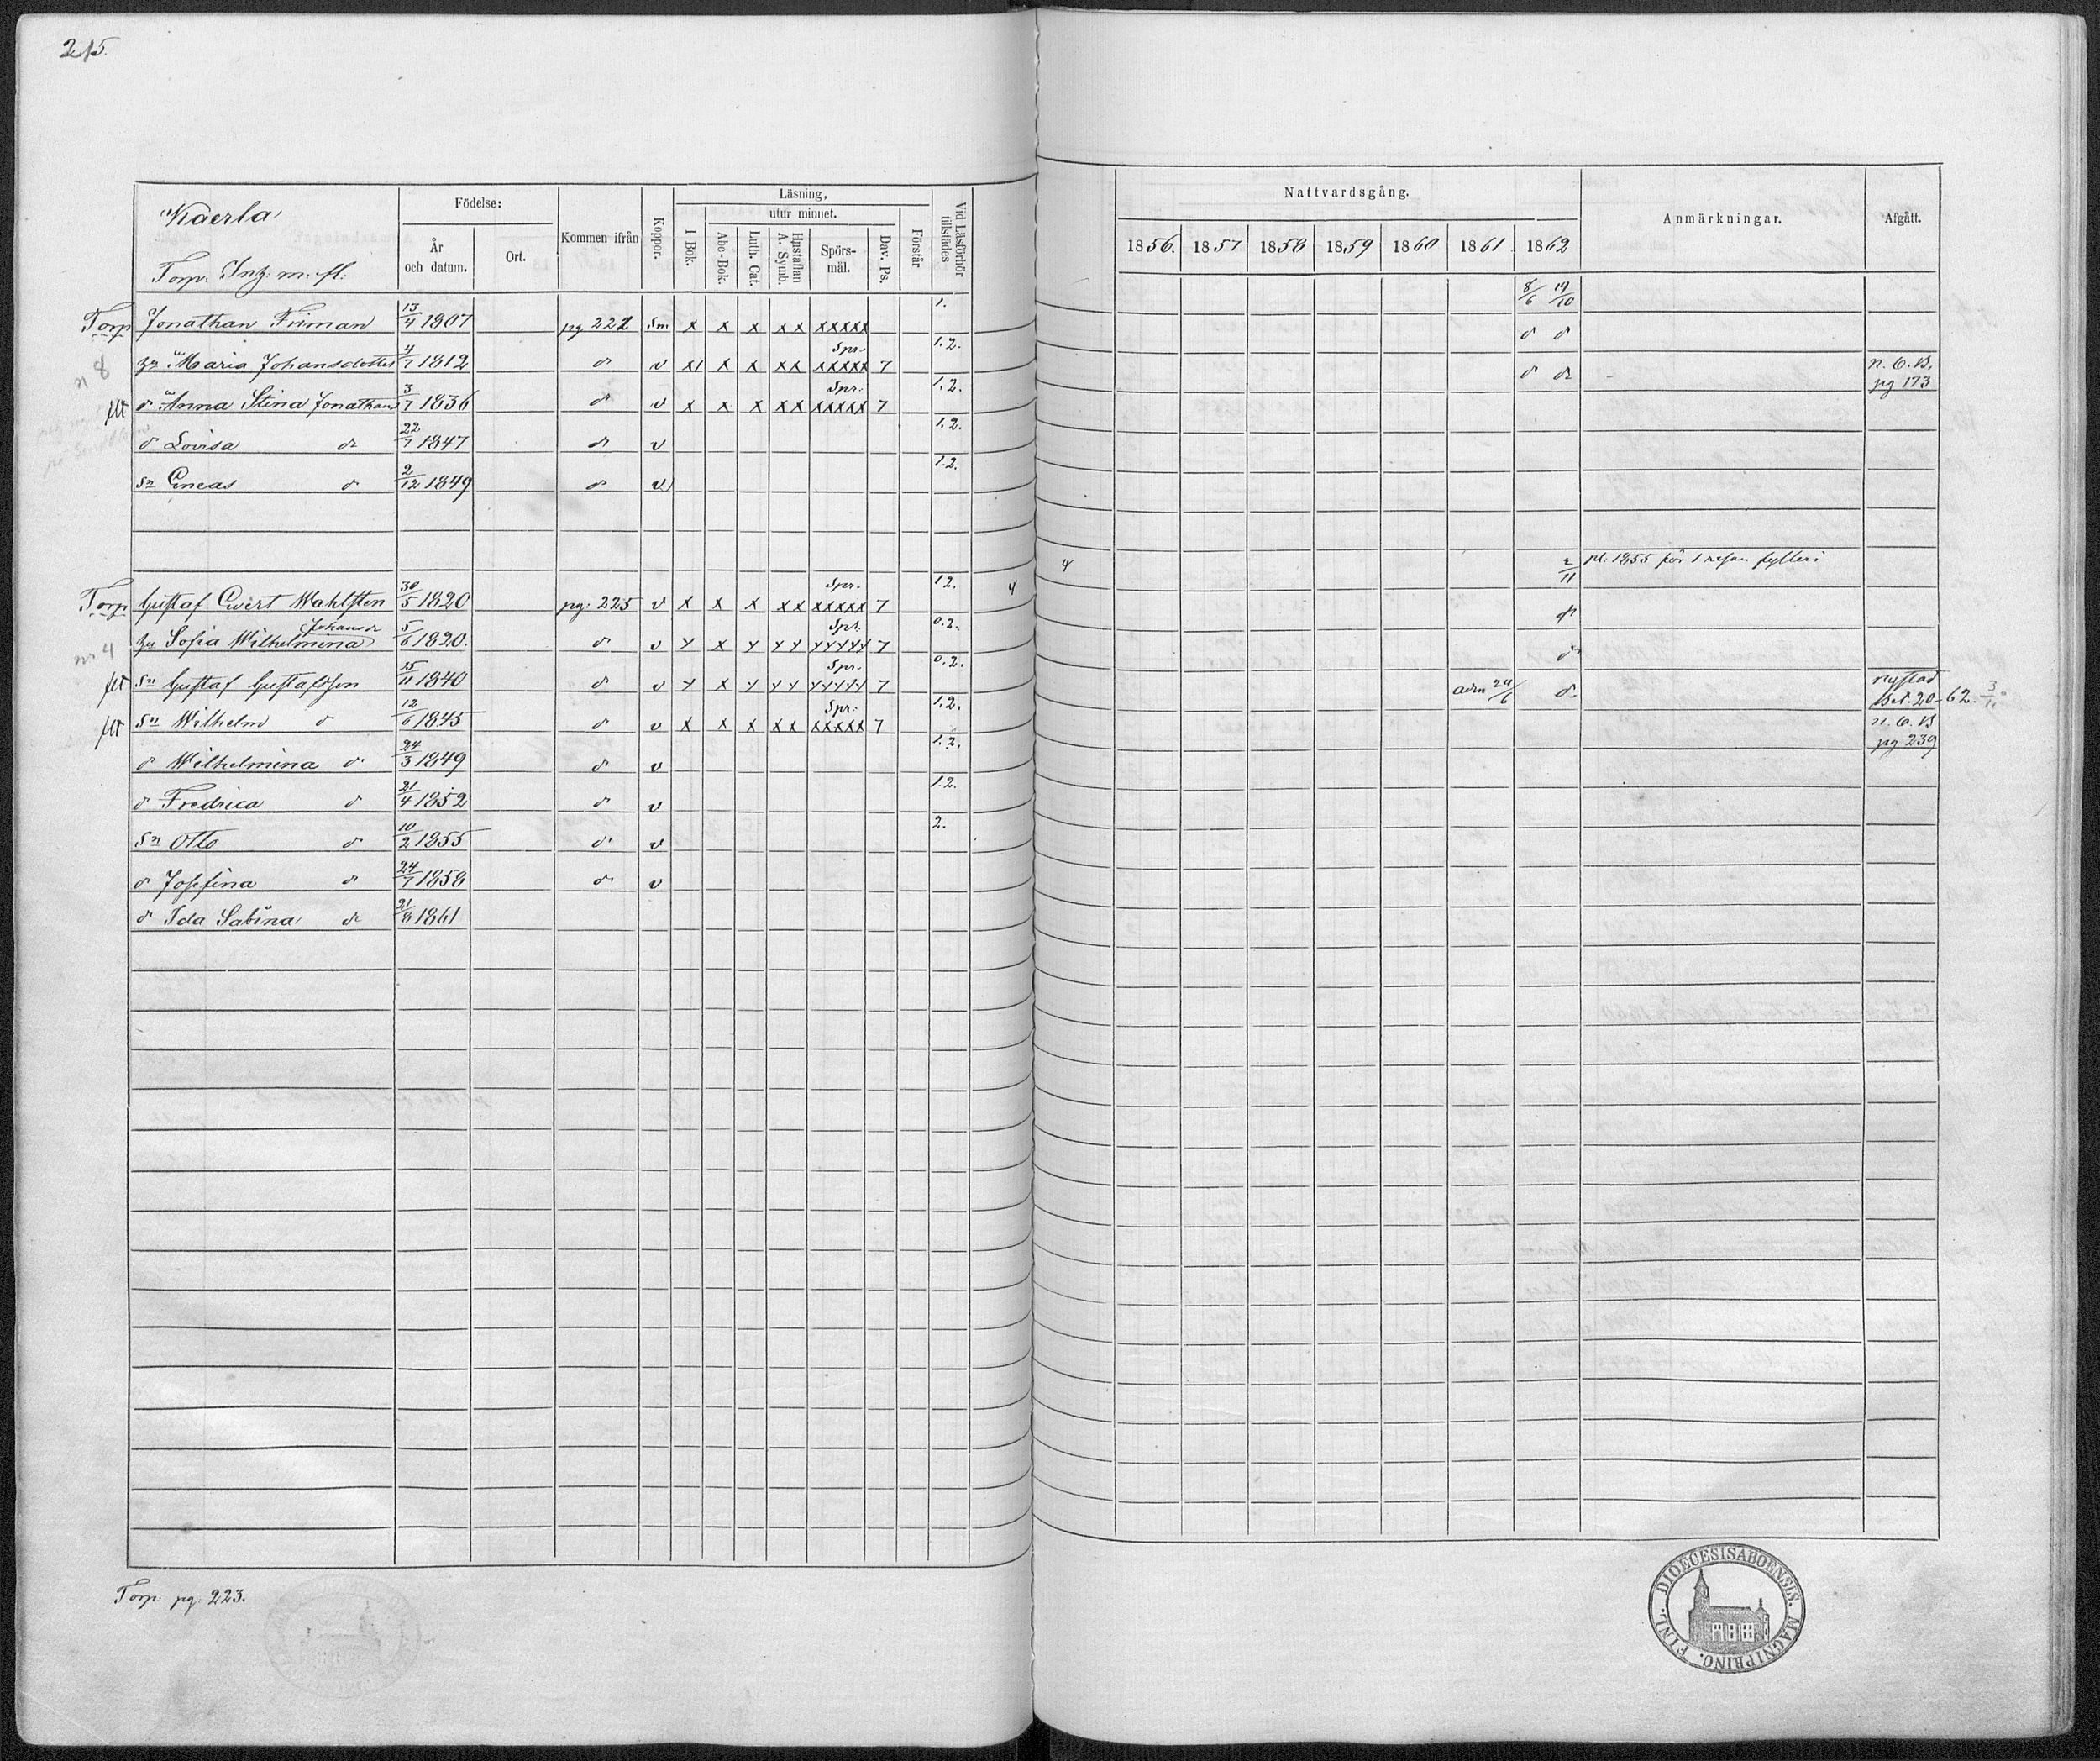 215.
Kaerla
Torp. Inh: m. fl.
Födelse:
År och datum.
Ort.
Kommen ifrån
Koppor.
Läsning,
I Bok.
utur minnet.
Abc-Bok.
Luth. Cat.
Hustaflan A. Symb.
Spörsmål.
Dav. Ps.
Förstår
Vid Läsförhör tillstädes
Nattvardsgång.
1856. 1857 1858 1859 1860 1861 1862
Anmärkningar.
Afgått.
Torp Jonathan Friman 13/4 1807 pg 222 Sm x x x x x xxxxx 1. 8/6 19/10
n 8 hu Maria Johansdotter 4/7 1812 d:o v x x x x x Spr. xxxxx 7 1.2. d:o d:o
flt dr Anna Stina Jonathans 3/7 1836 d:o v x x x x x Spr. xxxxx 7 1.2. d:o d:o n. C. B. pg 173
dr Lovisa d:o 22/7 1847 d:o v 1.2.
Sn Eneas d:o 2/12 1849 d:o v 1.2.
Torp Gustaf Evert Wahlsten 30/5 1820 pg: 225 v x x x x x Spr. xxxxx 7 12. 4 4 2/11 pl: 1855 för 1 resan fylleri
nr 4 hu Sofia Wilhelmina Johansdr 5/6 1820. d:o v Spr. 7 0.2. d:o
flt Sn Gustaf Gustafsson 15/11 1840 d:o v Spr. 7 0.2. d:o nystad Bet. 20-62. 3/11
flt Sn Wilhelm d:o 12/6 1845 d:o v x x x x x Spr: xxxxx 7 1.2. adm 24/6 d:o n. C. B pg 239
dr Wilhelmina d:o 24/3 1849 d:o v 1.2.
dr Fredrica d:o 21/4 1852 d:o v 1.2.
Sn Otto d:o 10/2 1855 d:o v 2.
dr Josefina d:o 24/7 1858 d:o v
dr Ida Sabina d:o 21/8 1861
Torp: pg: 223.
DIOECESIS ABOENSIS. MAGNI PRINC. FINL.